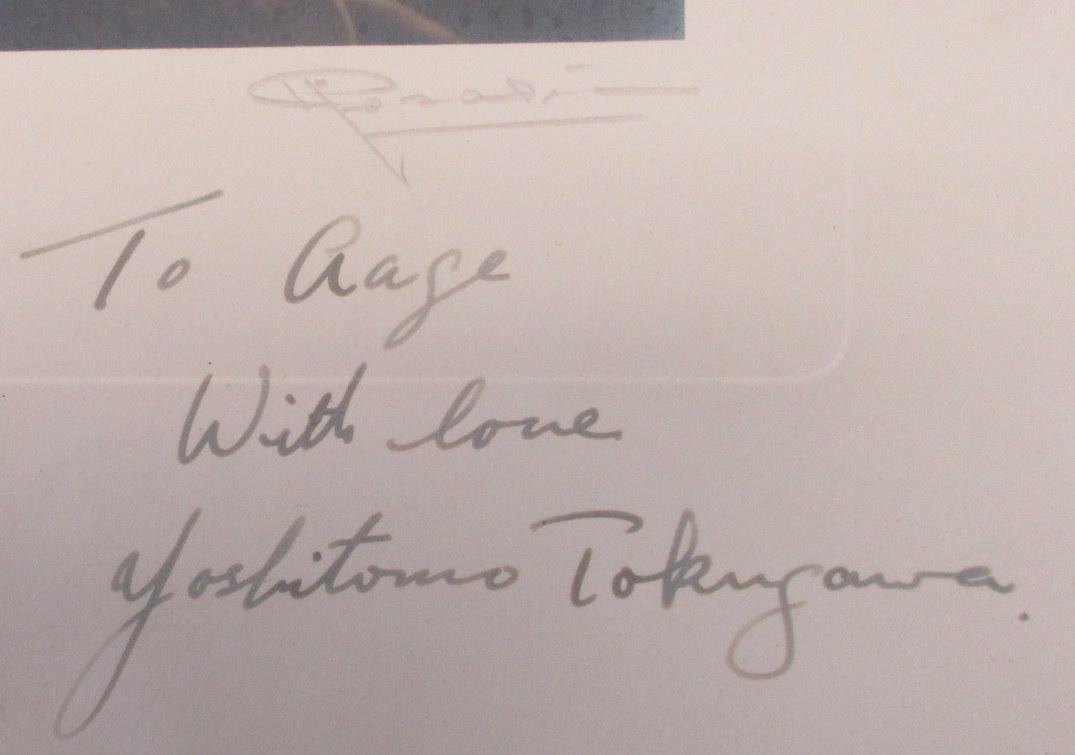 To Aage
With love
Yoshitomo Tokugawa.